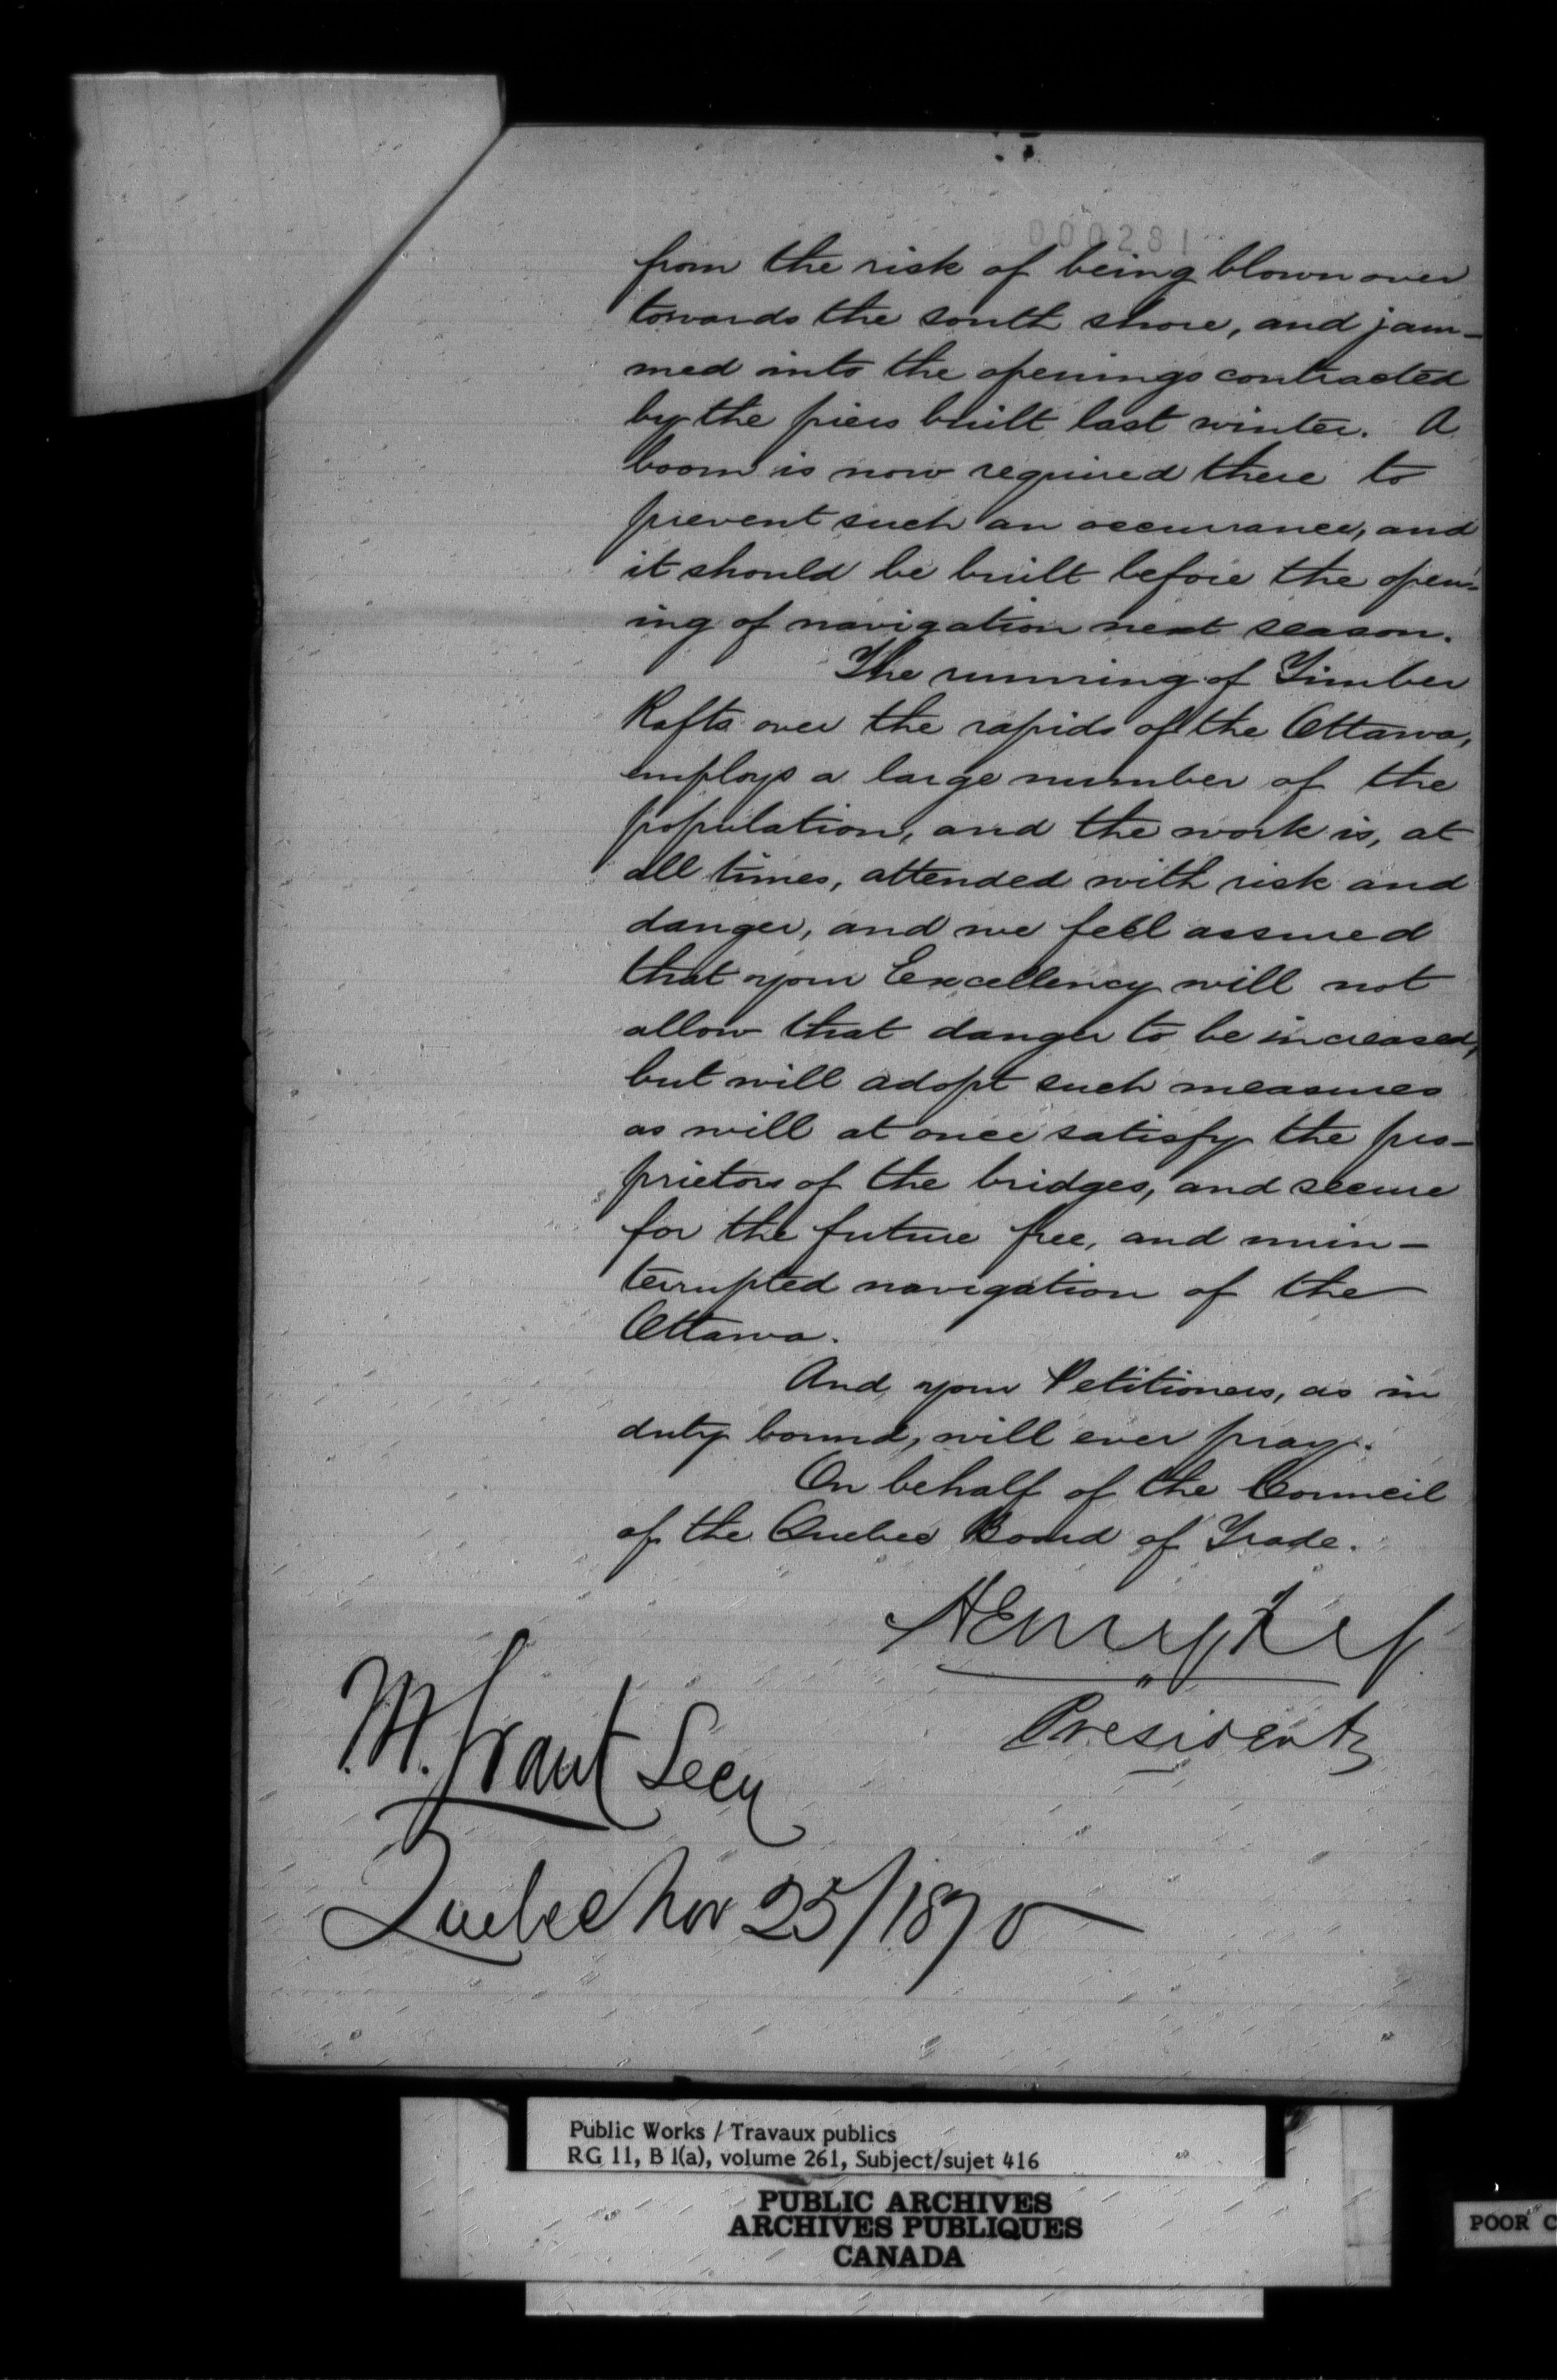 000281
from the risk of being blown over
towards the south shore, and jam-
med into the openings contracted
by the piers built last winter. A
boom is now required there to
prevent such an occurrance, and
it should be built before the open-
ing of navigation next season.
The running of Timber
Rafts over the rapids of the Ottawa,
employs a large number of the
population, and the work is, at
all times, attended with risk and
danger, and we feel assured
that your Excellency will not
allow that danger to be increased,
but will adopt such measures
as will at once satisfy the pro-
prietors of the bridges, and secure
for the future free, and unin-
terrupted navigation of the
Ottawa.
And your Petitioners, as in
duty bound, will ever pray.
On behalf of the Council
of the Quebec Board of Trade.
Henry Fry
President
M. Grant Secy
Quebec Nov 25/1870
Public Works / Travaux publics
RG 11, B 1(a), volume 261, Subject/sujet 416
PUBLIC ARCHIVES
ARCHIVES PUBLIQUES
CANADA
POOR C